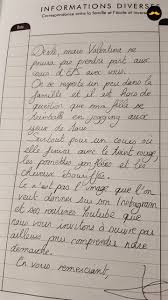 INFORMATIONS DIVERSES
Correspondance entre la famille et l'école et
Désolé, mais Valentine ne
pourra pas prendre part aux
cours d'EPS avec vous.
On se respecte un peu dans la
famille et il est hors de
question que ma fille se
trimballe en jogging aux
yeux de tous.
Surtout pour un cours où
elle finira avec le front rouge,
les pommettes gonflées et les
cheveux ébouriffés.
Ce n'est pas l'image que l'on
veut donner sur son Instagram
et ses routines Youtube que
nous vous invitons à suivre par
ailleurs pour comprendre notre
démarche.
En vous remerciant,